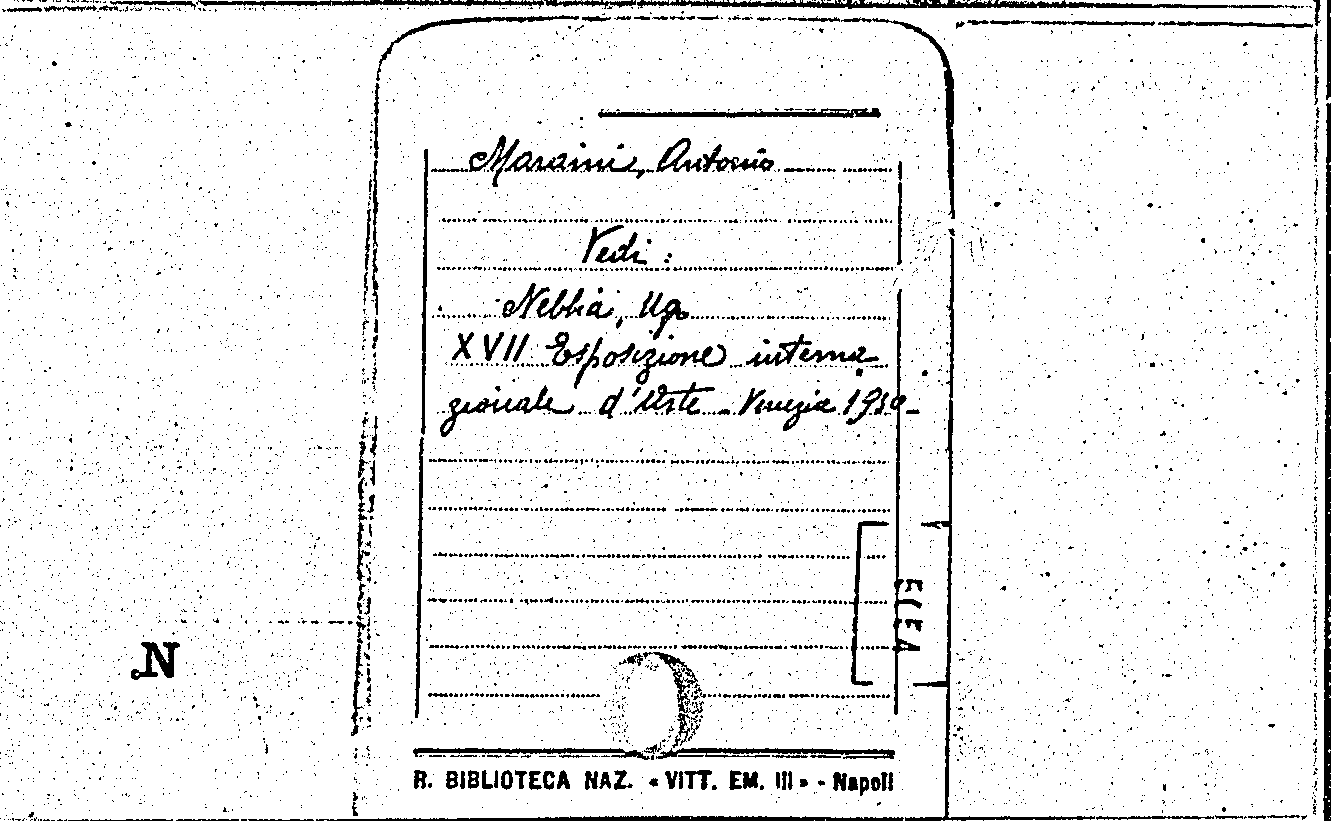 Maraini, Antonio
Vedi:
Nebbia, Ugo
XVII Esposizione interna
zionale d'Arte - Venezia 1930 -
N.
R. BIBLIOTECA NAZ. « VITT. EM. III » - Napoli